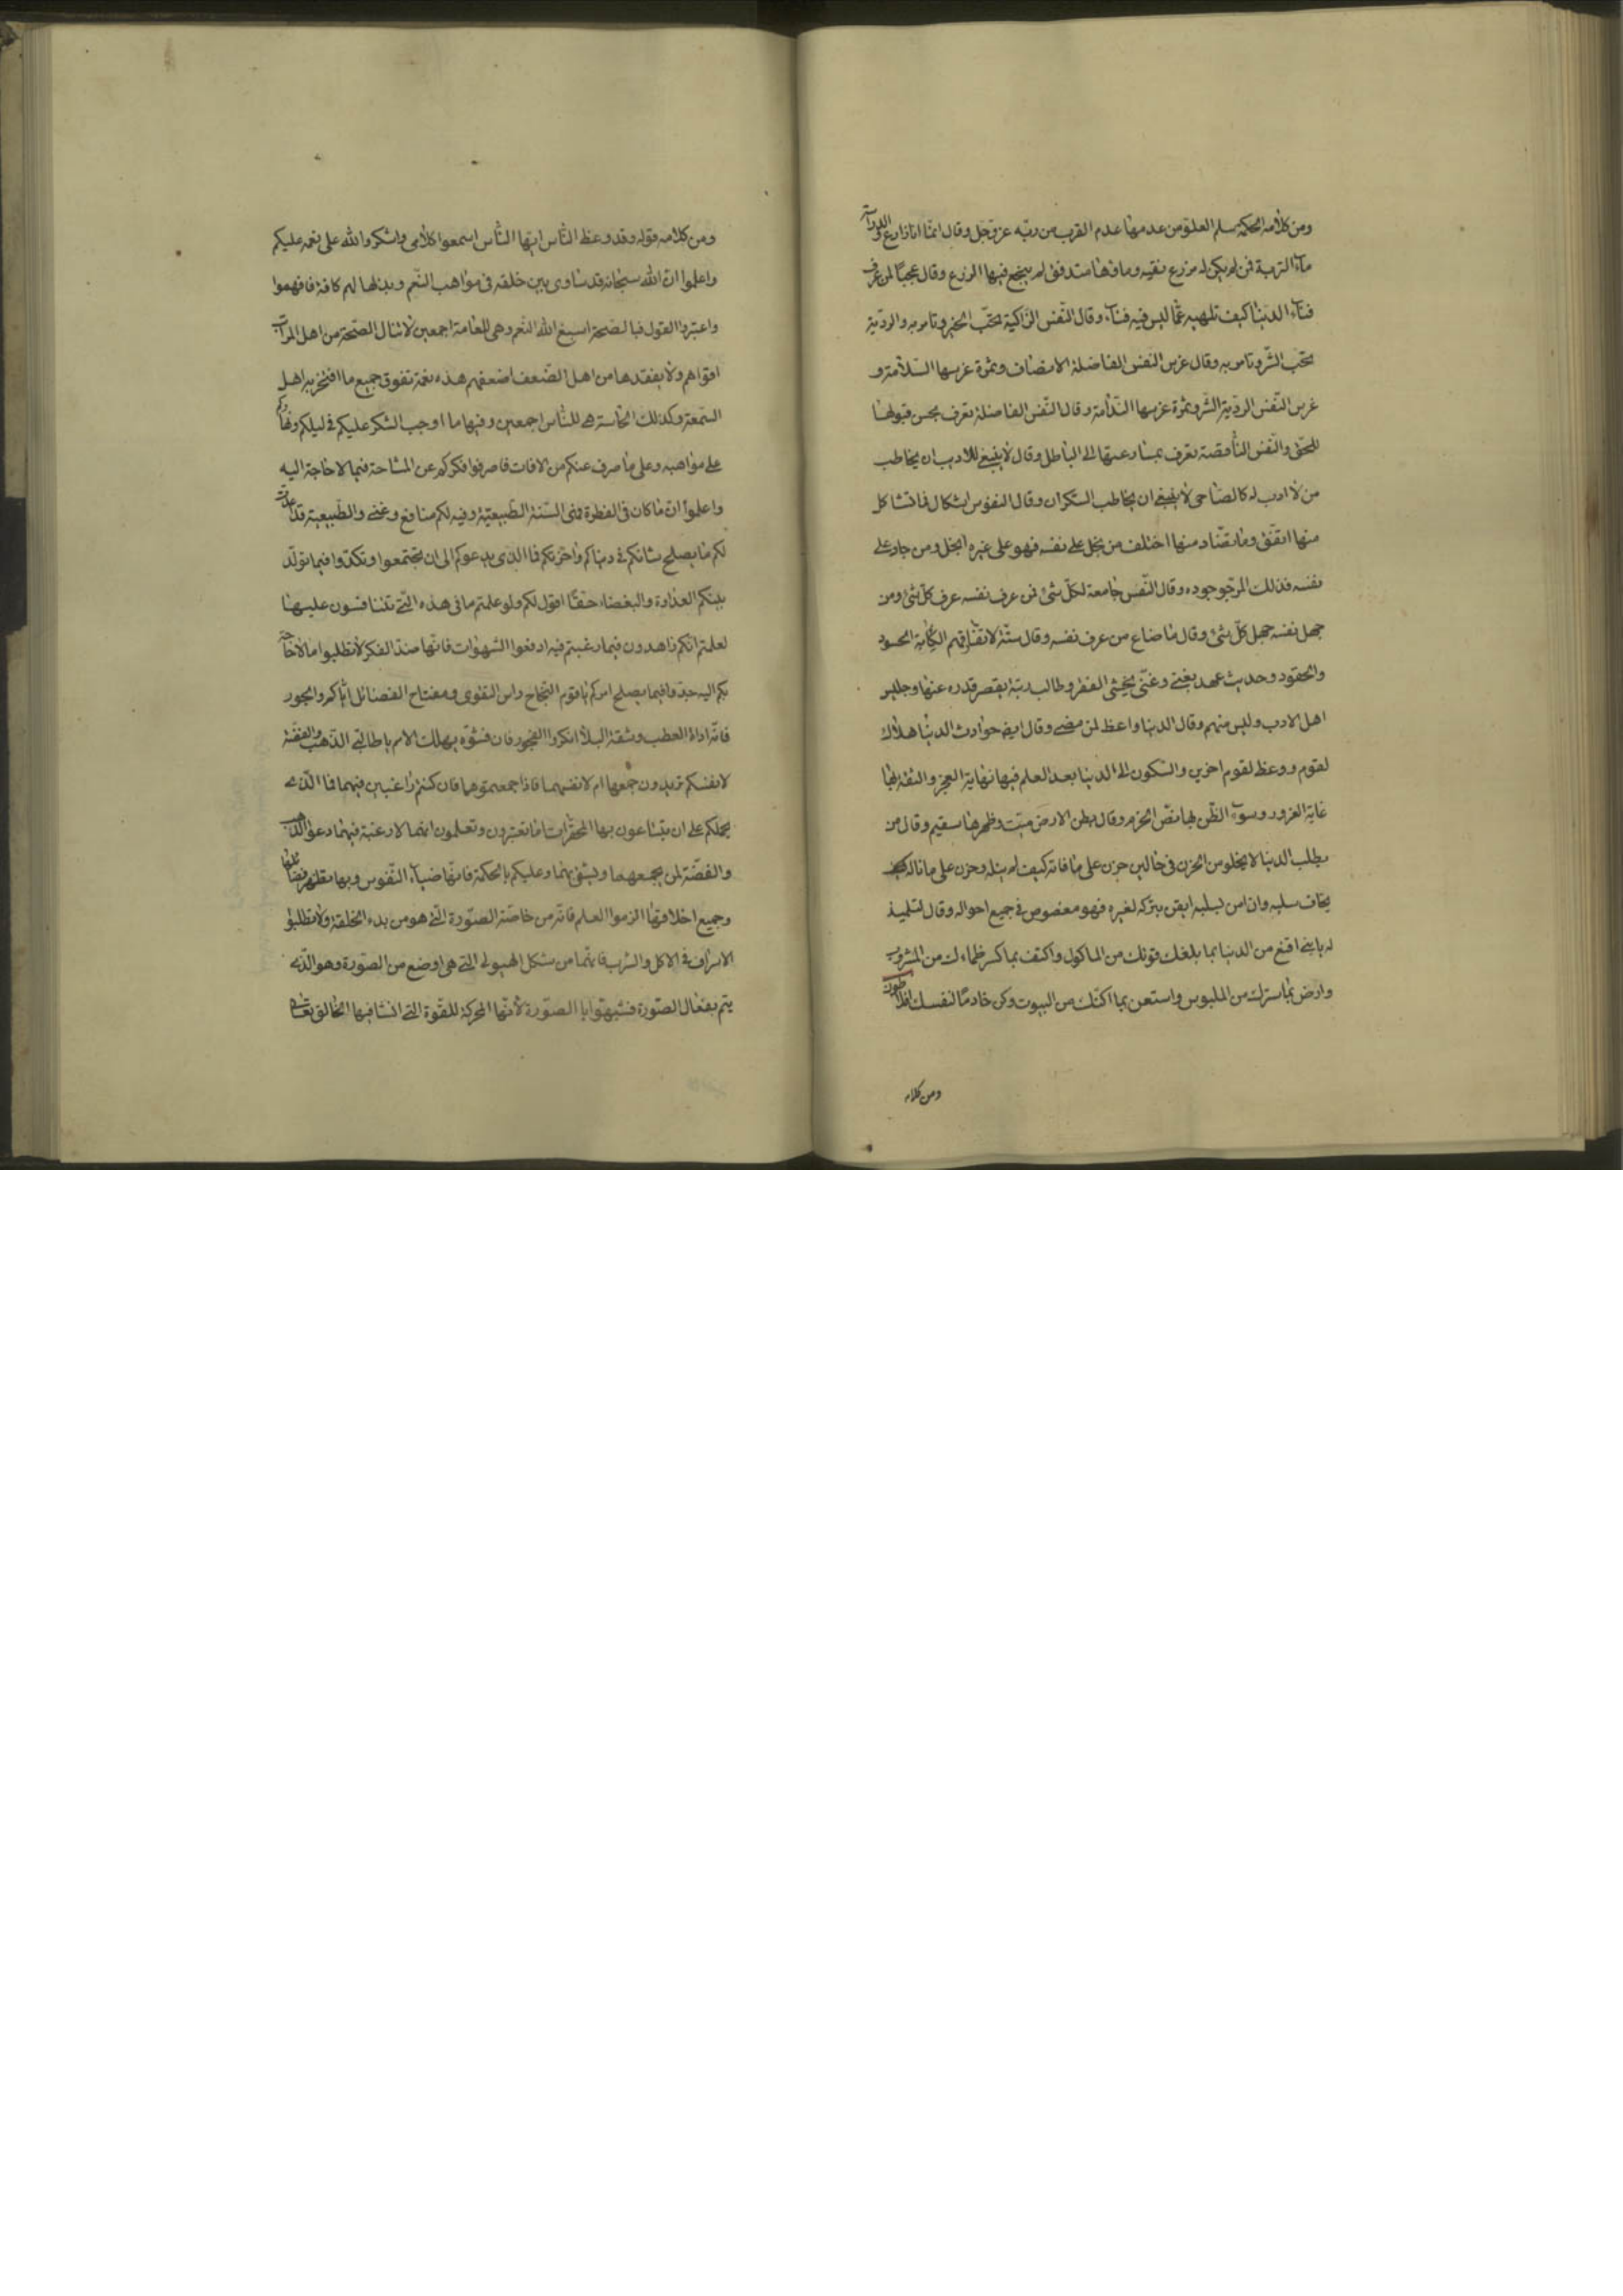 ومن كلامه الحكمة سلم العلو من عدمها عدم القرب من ربه عز وجل وقال انما انا زارع والدراسة
ماء التربة فمن لم يكن له مزرع نقيه وماؤها متدفق لم ينجع فيها الزرع وقال عجبا لمن عرف
فناء الدنيا كيف تلهيه عما ليس فيه فناء وقال النفس الزاكية تحب الخير وتامر به والرديه
تحب الشر وتامر به وقال غرس النفس الفاضلة الانصاف وثمرة غرسها السلامة و
غرس النفس الردية الشر وثمرة غرسها الندامة وقال النفس الفاضلة تعرف بحسن قبولها
للحق والنفس الناقصة تعرف بمسارعتها الى الباطل وقال لا ينبغي للاديب ان يخاطب
من لا ادب له كالصاحى لا ينبغي ان يخاطب السكران وقال النفوس اشكال فما تشاكل
منها اتفق وما تضاد منها اختلف من بخل على نفسه فهو على غيره ابخل ومن جاد على
نفسه فذلك المرجو جوده وقال النفس جامعة لكل شئ فمن عرف نفسه عرف كل شئ ومن
جهل نفسه جهل كل شئ وقال ما ضاع من عرف نفسه وقال ستة لا تفارقهم الكابة الحسود
والحقود وحديث عهد بغنى وغنى يخشى الفقر وطالب رتبة يقصر قدره عنها وجليس
اهل الادب وليس منهم وقال الدنيا واعظ لمن مضى وقال ايضا حوادث الدنيا هلاك
لقوم ووعظ لقوم اخرين والسكون الى الدنيا بعد العلم فيها نهاية العجز والثقة بها
غاية الغرور وسوء الظن بها نص الحزم وقال بطن الارض ميت وظهرها سقيم وقال من
يطلب الدنيا لا يخلو من الحزن في حالين حزن على ما فاته كيف لم ينله وحزن على ما ناله
يخاف سلبه وان امن سلبه ايقن بتركه لغيره فهو مغصوص في جميع احواله وقال لتلميذ
له يا بني اقنع من الدنيا بما بلغك قوتك من الماكول واكتف بما كسر ظماءك من المشروب
وارض بما سترك من الملبوس واستعن بما اكنك من البيوت وكن خادما لنفسك افلاطون
ومن كلامه
ومن كلامه قوله وقد وعظ الناس ايها الناس اسمعوا كلامى واشكروا الله على نعمه عليكم
واعلموا ان الله سبحانه قد ساوى بين خلقه في مواهب النعم وبذلها لهم كافة فافهموا
واعتبروا القول فبالصحة اسبغ الله النعم وهى للعامة اجمعين لا تنال الصحة من اهل المراتب
اقواهم ولا يفقدها من اهل الضعف اضعفهم هذه نعمة تفوق جميع ما افتخر به اهل
السمعة وكذلك الحاسة هى للناس اجمعين وفيها ما اوجب الشكر عليكم في ليلكم ونهاركم
على مواهبه وعلى ما صرف عنكم من الافات فاصرفوا فكركم عن المشاحة فيما لا حاجة اليه
واعلموا ان ما كان في الفطرة فنى السنة الطبيعية وفيه لكم منافع وغنى والطبيعية قد
لكم ما يصلح شانكم في دنياكم واخرتكم فما الذى يدعوكم الى ان تجتمعوا وتكدوا فيما تولد
بينكم العداوة والبغضاء حقا اقول لكم ولو علمتم ما فى هذه التى تتنافسون عليها
لعلمتم انكم زاهدون فيما رغبتم فيه ادفعوا الشهوات فانها ضد الفكر لا تطلبوا ما لا حاجة
بكم اليه جدوا فيما يصلح امركم يا قوم النجاح راس التقوى ومفتاح الفضائل اياكم والجور
فانه اداة العطب وشقة البلا انكروا الفجور فان فشوه يهلك الامم يا طالبى الذهب والفضة
لانفسكم تريدون جمعها ام لانفسهما فاذا جمعتموهما فان كنتم راغبين فيهما فما الذى
يحملكم على ان تبتاعون بها المحقرات اما تعتبرون وتعلمون انما لا رغبة فيهما دعوا الذهب
والفضة لمن يجمعهما ويشقى بهما وعليكم بالحكمة فانها ضياء النفوس وبها تطهر
وجميع اخلاقها الزموا العلم فانه من خاصة الصورة التى هو من بدء الخلقة ولا تطلبوا
الاسراف في الاكل والشرب فانهما من شكل الهيولى التى هى اوضع من الصورة وهو الذى
يتم بفعال الصورة فتشبهوا با الصورة لانها المحركة للقوة التى انشا فيها الخالق تعالى